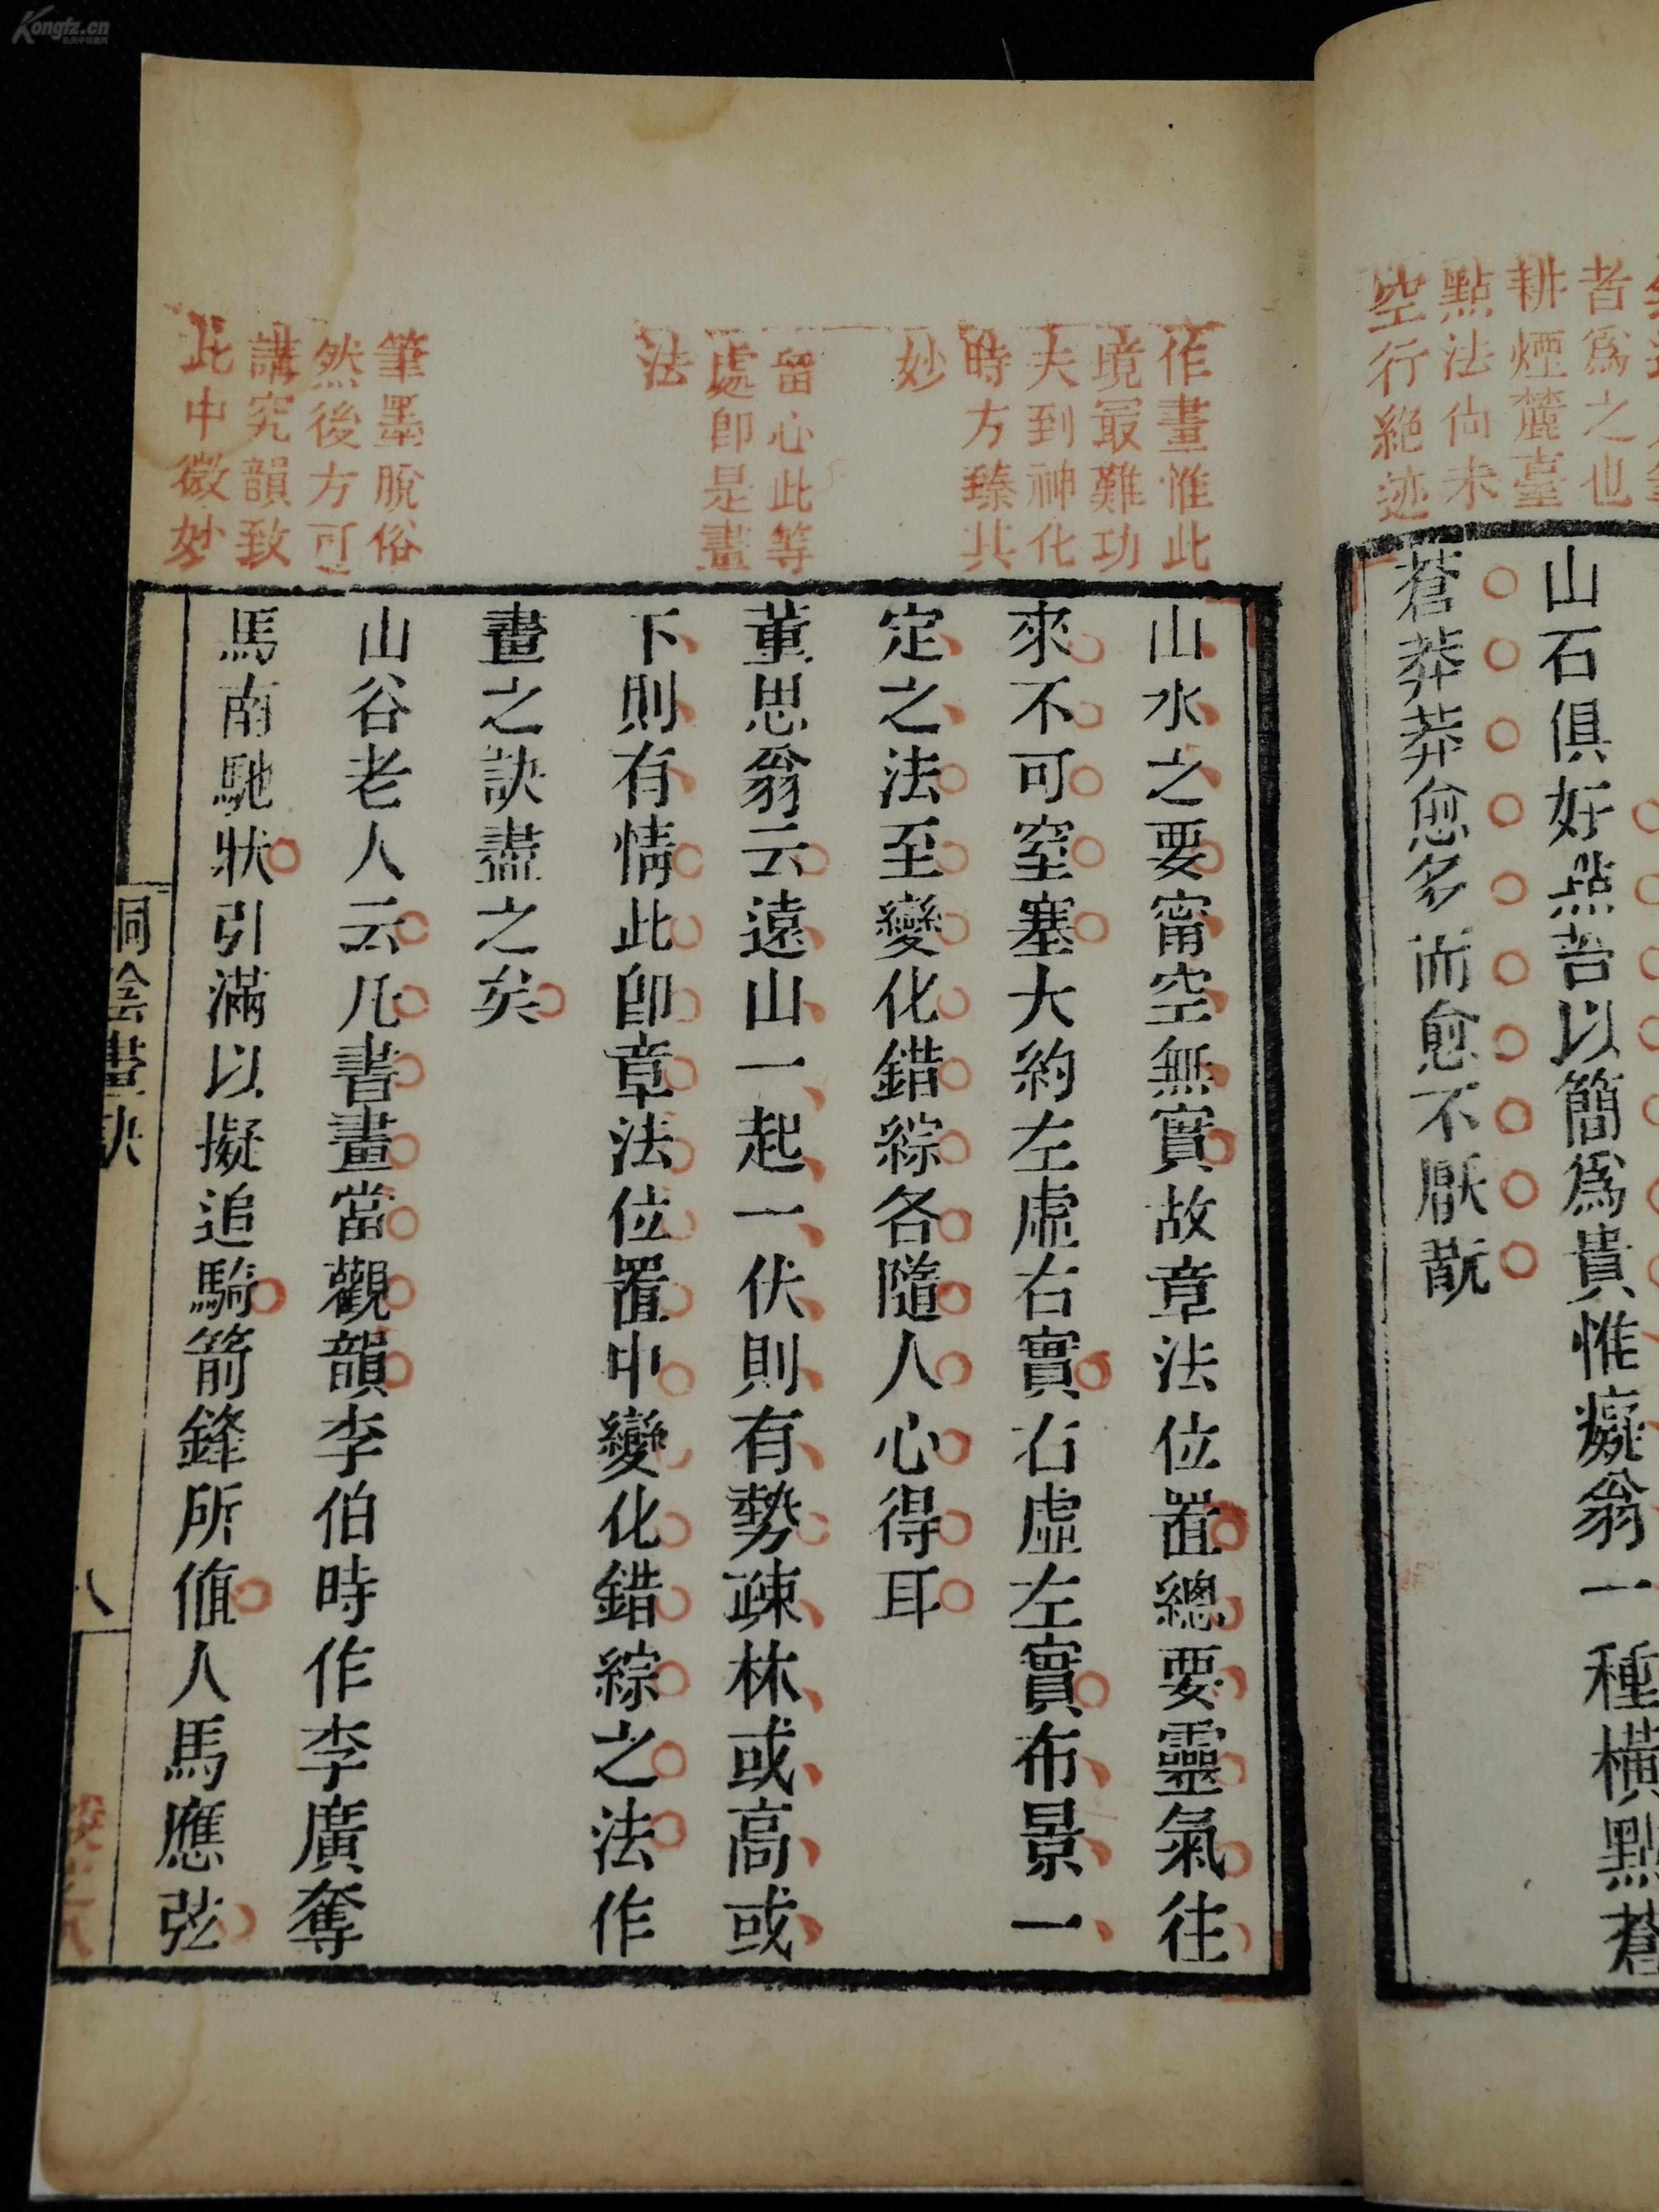 Kongfz.cn
者爲之也
耕煙麓臺
點法尚未
空行絶迹
山石俱好點苔以簡爲貴惟癡翁一種橫點蒼
蒼莽莽愈多而愈不厭翫
作畫惟此
境最難功
夫到神化
時方臻其
妙
留心此等
處卽是畫
法
筆墨脫俗
然後方可
講究韻致
此中微妙
山水之要甯空無實故章法位置總要靈氣往
來不可窒塞大約左虛右實右虛左實布景一
定之法至變化錯綜各隨人心得耳
董思翁云遠山一起一伏則有勢疎林或高或
下則有情此卽章法位置中變化錯綜之法作
畫之訣盡之矣
山谷老人云凡書畫當觀韻李伯時作李廣奪
馬南馳狀引滿以擬追騎箭鋒所値人馬應弦
桐陰畫訣
八